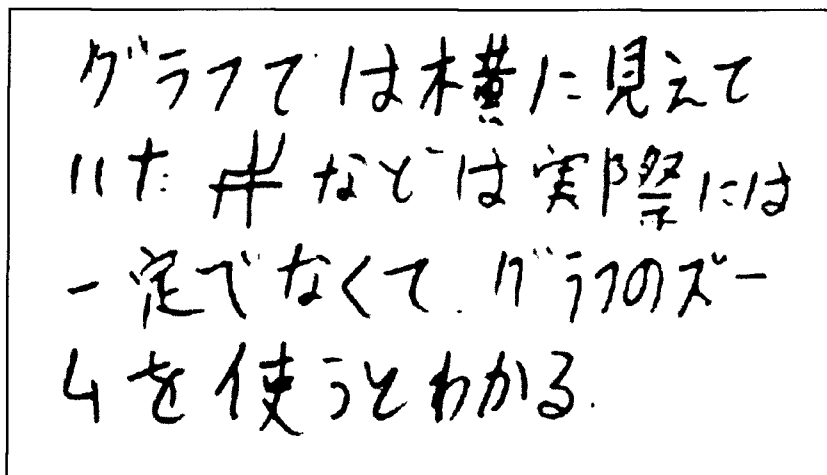 グラフでは横に見えて
いた井などは実際には
一定でなくて.グラフのズー
ムを使うとわかる.